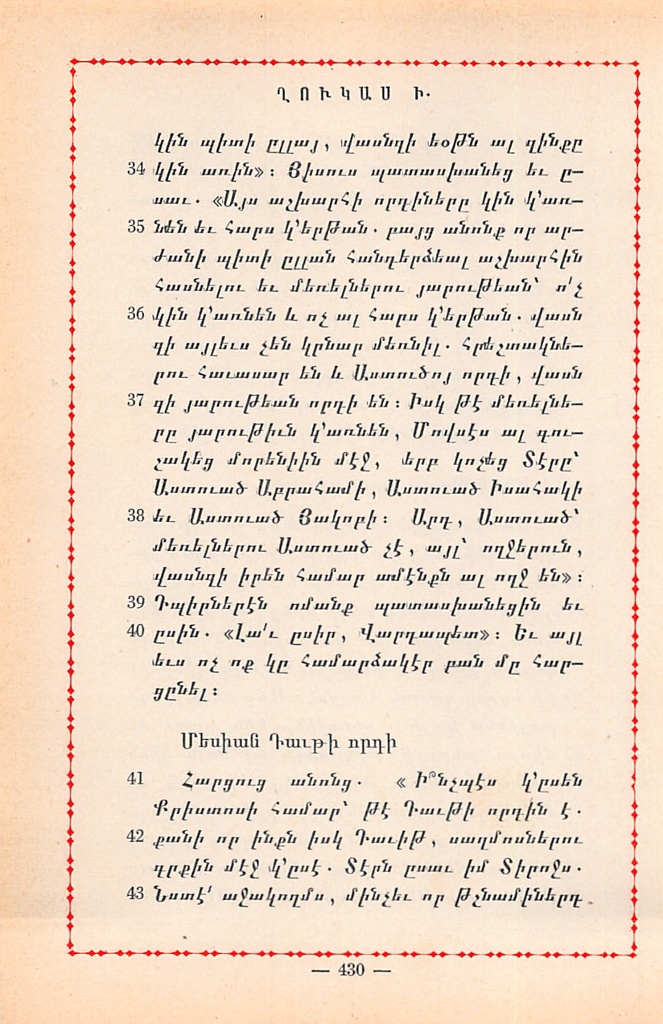 ՂՈՒԿԱՍ Ի.
կին պիտի ըլլայ, վասնզի եօթն ալ զինքը
34 կին առին»։ Յիսուս պատասխանեց եւ ը-
սաւ. «Այս աշխարհի որդիները կին կ՚առ-
35 նեն եւ հարս կ՚երթան. բայց անոնք որ ար-
ժանի պիտի ըլլան հանդերձեալ աշխարհին
հասնելու եւ մեռելներու յարութեան՝ ո՛չ
36 կին կ՚առնեն և ոչ ալ հարս կ՚երթան. վասն
զի այլեւս չեն կրնար մեռնիլ. հրեշտակնե-
րու հաւասար են և Աստուծոյ որդի, վասն
37 զի յարութեան որդի են։ Իսկ թէ մեռելնե-
րը յարութիւն կ՚առնեն, Մովսէս ալ գու-
շակեց մորենիին մէջ, երբ կոչեց Տէրը՝
Աստուած Աբրահամի, Աստուած Իսահակի
38 եւ Աստուած Յակոբի։ Արդ, Աստուած՝
մեռելներու Աստուած չէ, այլ՝ ողջերուն,
վասնզի իրեն համար ամէնքն ալ ողջ են»։
39 Դպիրներէն ոմանք պատասխանեցին եւ
40 ըսին. «Լա՛ւ ըսիր, Վարդապետ»։ Եւ այլ
եւս ոչ ոք կը համարձակէր բան մը հար-
ցընել։
Մեսիան Դաւթի որդի
41 Հարցուց անոնց. «Ի՞նչպէս կ՚ըսեն
Քրիստոսի համար՝ թէ Դաւթի որդին է.
42 քանի որ ինքն իսկ Դաւիթ, սաղմոսներու
գրքին մէջ կ՚ըսէ. Տէրն ըսաւ իմ Տիրոջս.
43 Նստէ՛ աջակողմս, մինչեւ որ թշնամիներդ
— 430 —